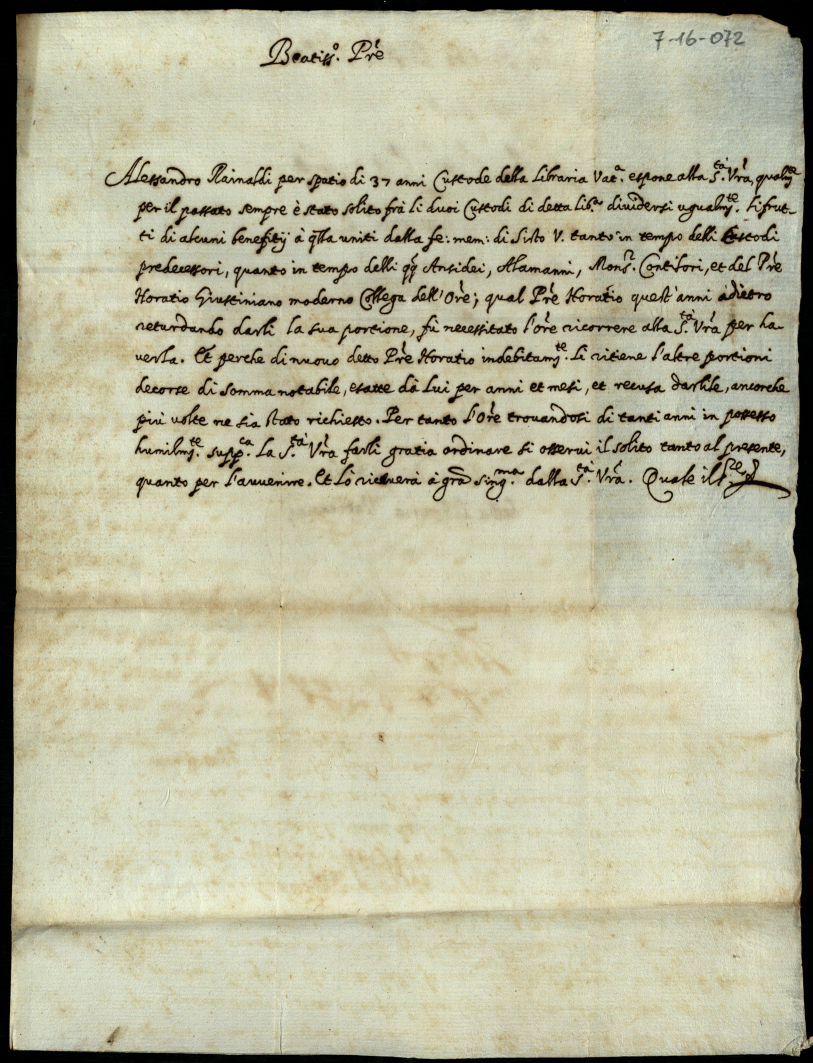 7-16-072
Beatiss.º Prê
Alessandro Rainaldi per spatio di 37 anni Custode della Libraria Vat.ª espone alla S.tà Vrâ, qualm.te
per il passato sempre è stato solito frà li duoi Custodi di detta Lib.ª dividersi ugualm.te li frut-
ti di alcuni benefitij à qlla uniti dalla fe: mem: di Sisto V. tanto in tempo delli Custodi
predecessori, quanto in tempo delli qq. Ansidei, Alamanni, Mons.r Contilori, et del Prê
Horatio Giustiniano moderno Collega dell'Orê; qual Prê Horatio quest'anni adietro
retardando darli la sua portione, fù necessitato l'orê ricorrere alla S.tà Vrâ per ha-
verla. Et perche di nuovo detto Prê Horatio indebitam.te li ritiene l'altre portioni
decorse di somma notabile, esatte dà lui per anni et mesi, et recusa darlile, ancorche
più volte ne sia stato richiesto. Per tanto l'Orê trovandosi di tanti anni in possesso
humilm.te supp.ca la S.tà Vrâ farli gratia ordinare si osservi il solito tanto al presente,
quanto per l'avvenire. Et lo riceverà à grâ sing.ma dalla S.tà Vrâ. Quale il